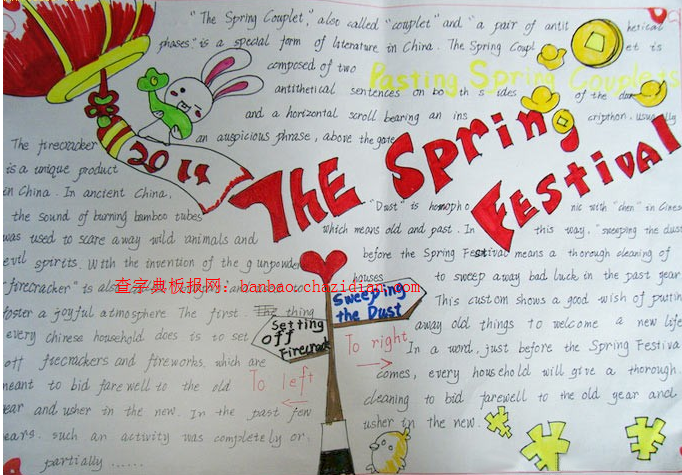 "The Spring Couplet," also called "couplet" and "a pair of antit hetical
phases" is a special form of literature in China. The Spring Coupl et is
composed of two
Pasting Spring Couplets
antithetical sentences on both sides of the door
and a horizontal scroll bearing an ins cription, usually
an auspicious phrase, above the gate
2011
The Spring Festival
The firecracker
is a unique product
in China. In ancient China,
the sound of burning bamboo tubes
was used to scare away wild animals and
evil spirits. With the invention of the gunpowder
"firecracker" is also
foster a joyful atmosphere The first thing
every chinese household does is to set
off firecrackers and fireworks, which are
meant to bid farewell to the old
year and usher in the new. In the past few
years, such an activity was completely or
partially ......
"Dust" is homopho nic with "chen" in Cines
which means old and past. In this way, "sweeping the dust
before the Spring Festival means a thorough cleaning of
houses to sweep away bad luck in the past year
This custom shows a good wish of putin
away old things to welcome a new life
In a word, just before the Spring Festiva
comes, every household will give a thorough
cleaning to bid farewell to the old year and
usher in the new.
Sweeping
the Dust
Setting
off
Firecrack
To right
To left
查字典板报网：banbao.chazidian.com